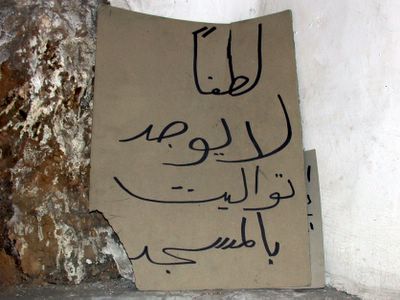 لطفاً
لا يوجد
تواليت
بالمسجد